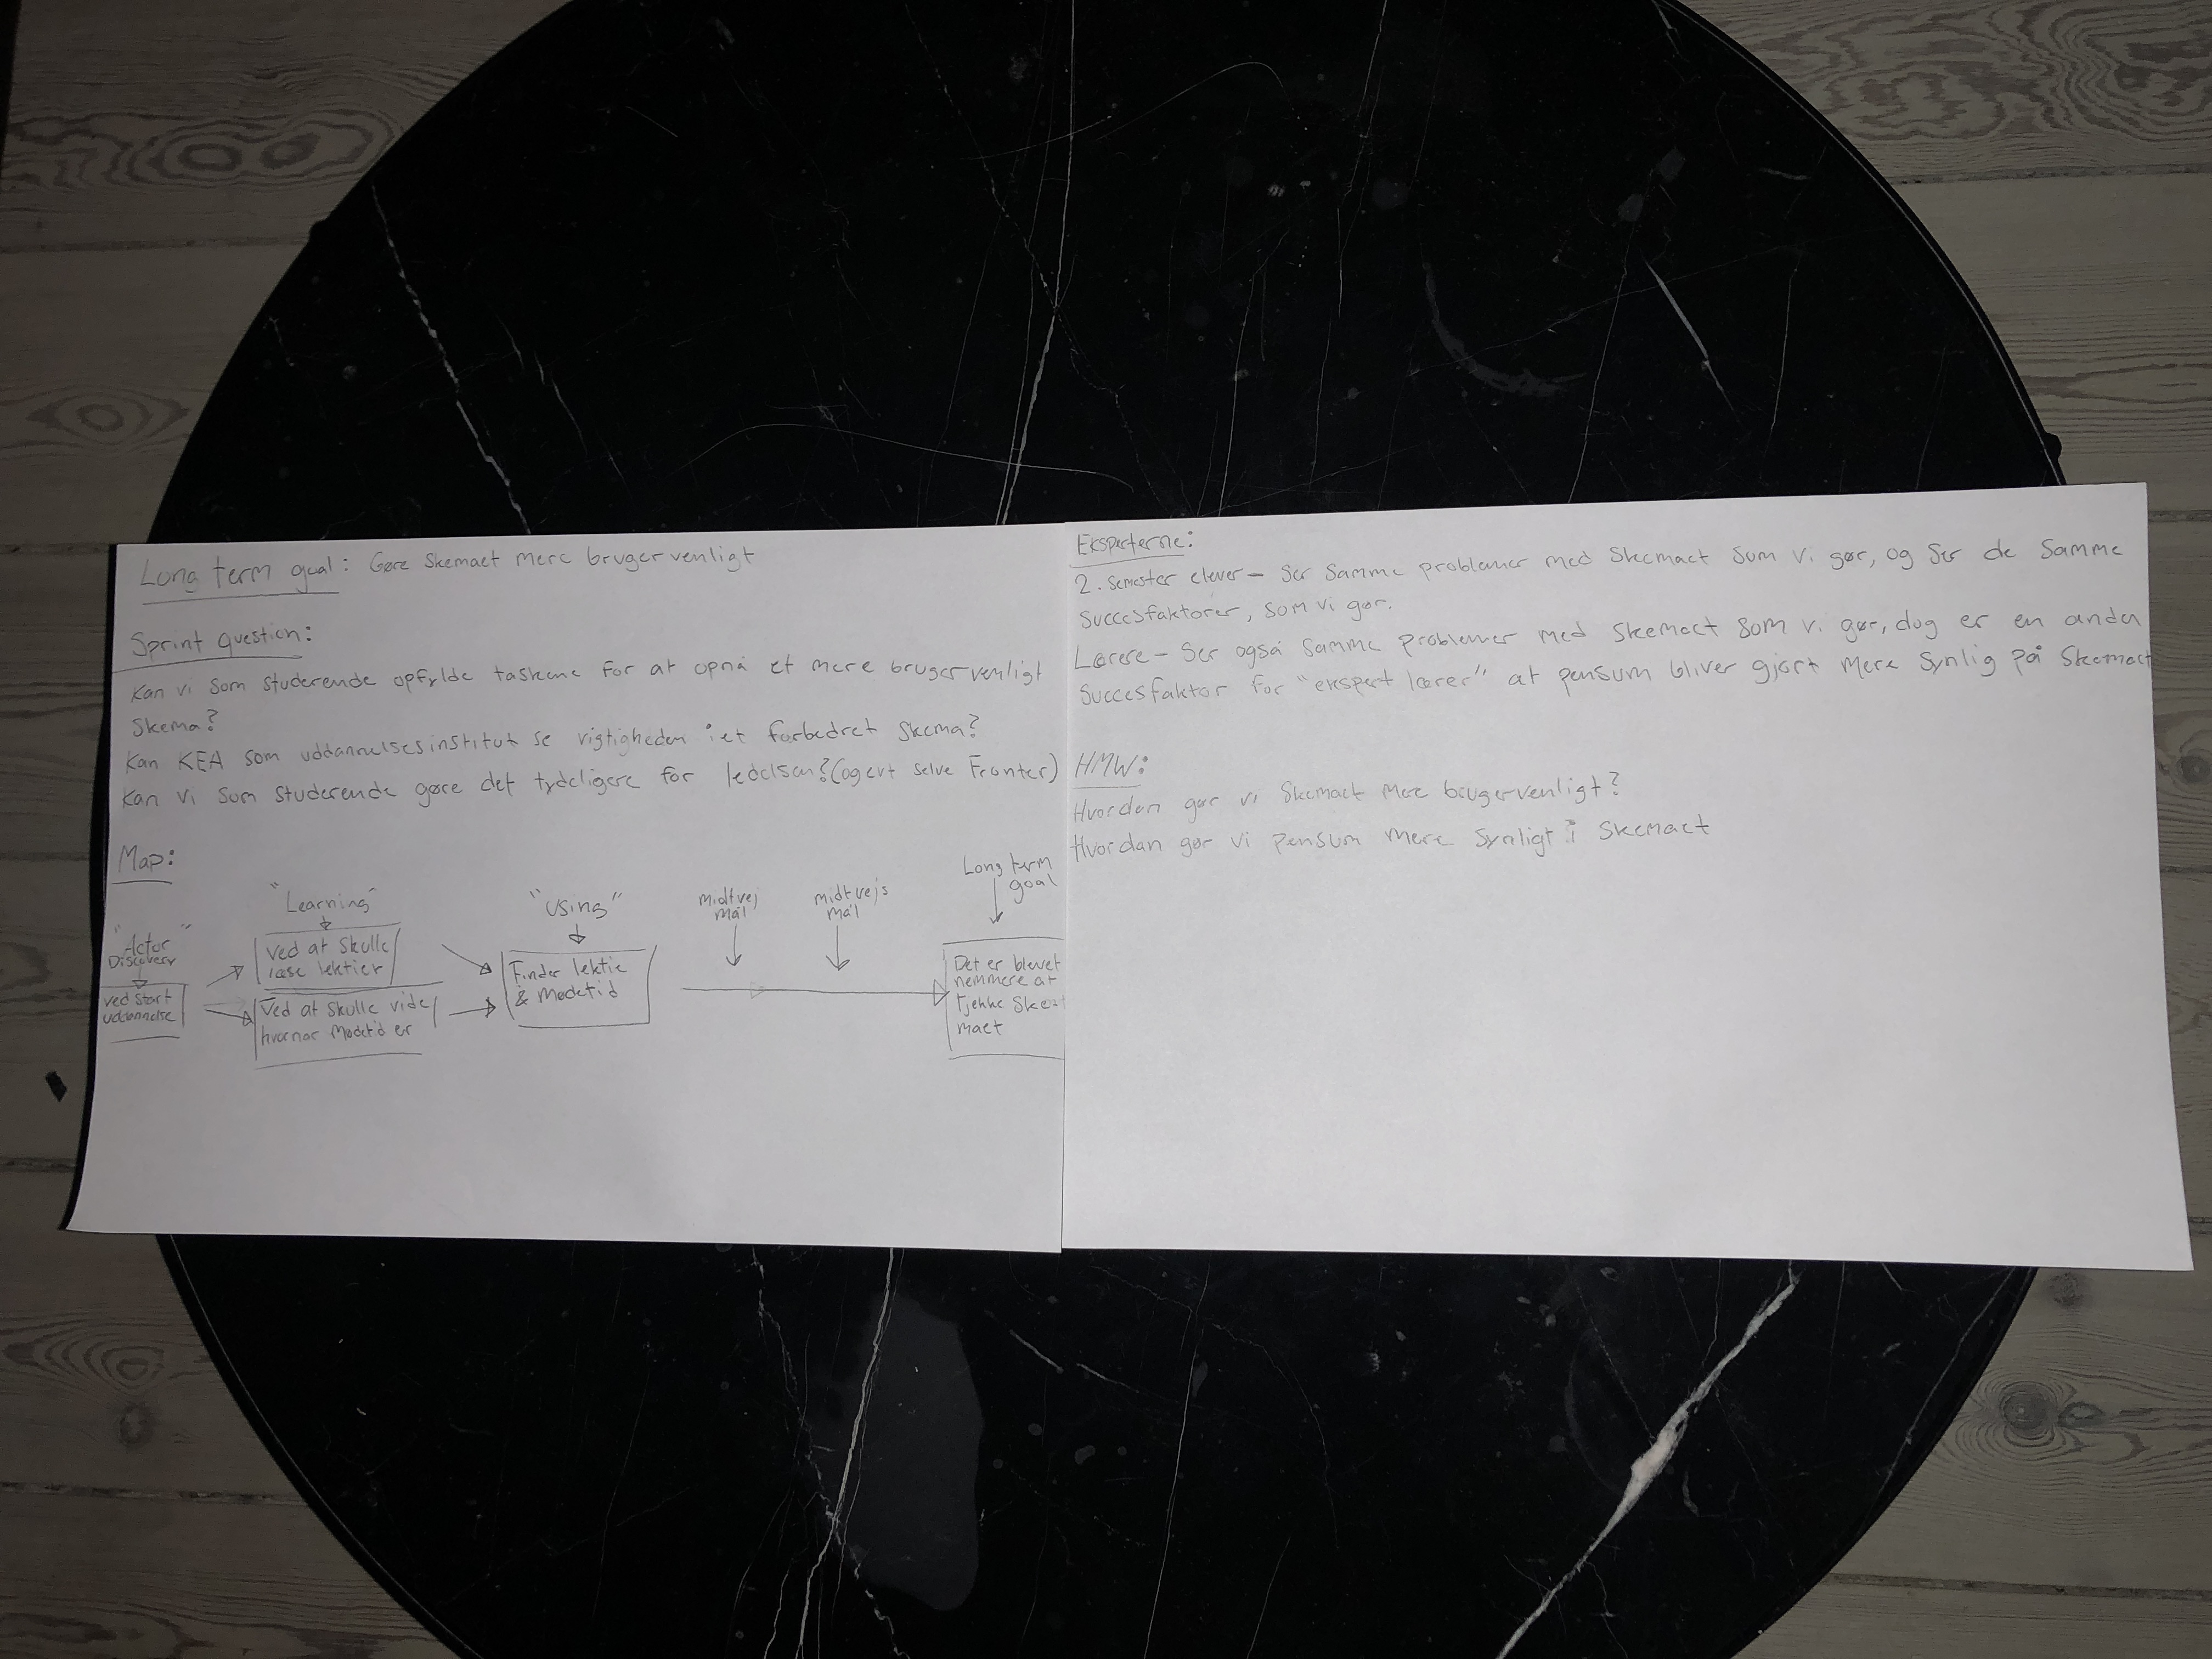 Long term goal: Gøre skemaet mere brugervenligt
Sprint question:
Kan vi som studerende opfylde taskene for at opnå et mere brugervenligt
skema?
Kan KEA som uddannelsesinstitut se vigtigheden i et forbedret skema?
Kan vi som studerende gøre det tydeligere for ledelsen? (og evt selve Fronter)
Map:
"Actor
Discovery"
ved start
uddannelse
"Learning"
Ved at skulle
læse lektier
Ved at skulle vide
hvornår mødetid er
"Using"
Finder lektie
& mødetid
midtvej
mål
midtvejs
mål
Long term
goal
Det er blevet
nemmere at
tjekke ske-
maet
Eksperterne:
2. semester elever - Ser samme problemer med skemaet som vi gør, og ser de samme
succesfaktorer, som vi gør.
Lærere - Ser også samme problemer med skemaet som vi gør, dog er en anden
succesfaktor for "ekspert lærer" at pensum bliver gjort mere synlig på skemaet
HMW:
Hvordan gør vi skemaet mere brugervenligt?
Hvordan gør vi pensum mere synligt i skemaet